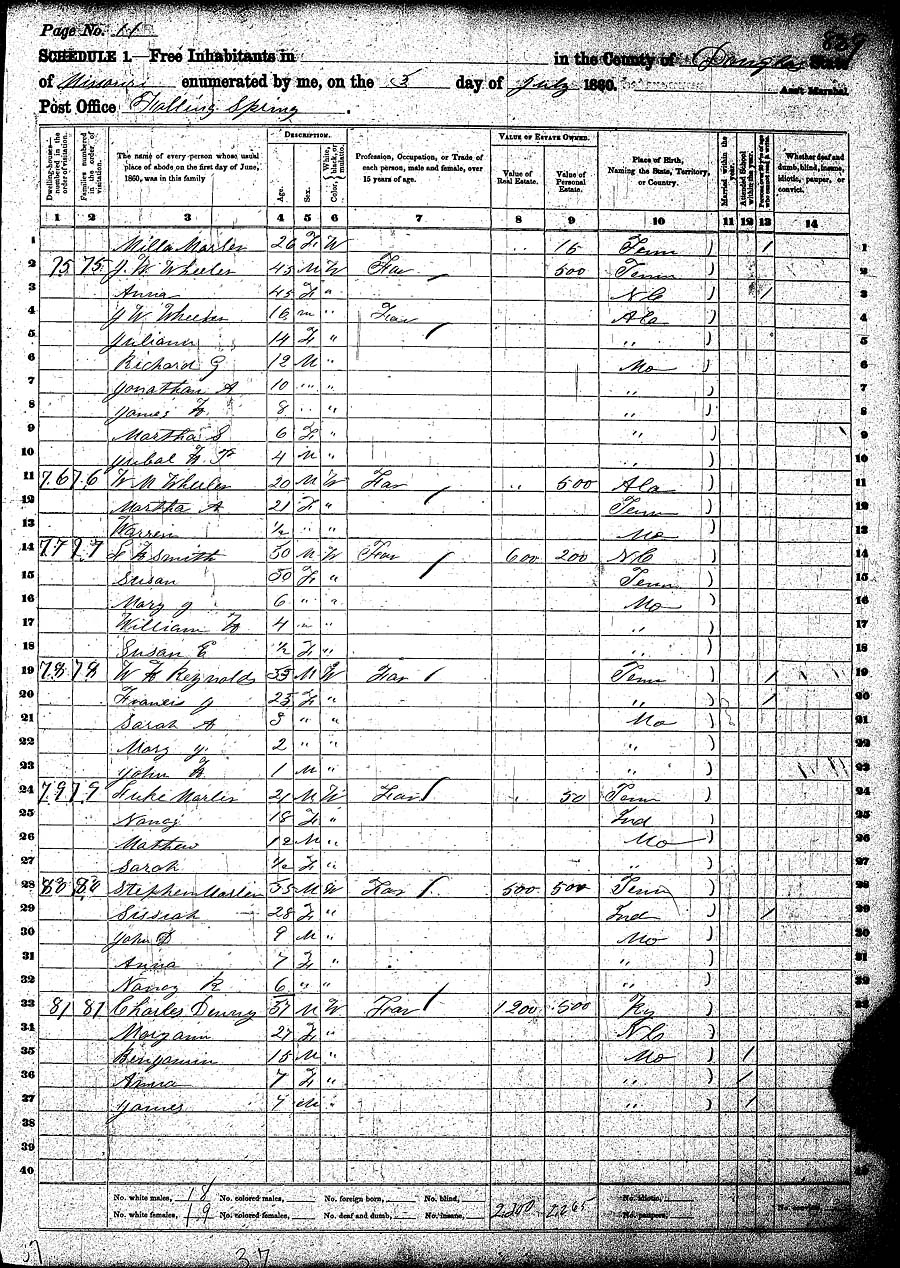 Page No. 11
SCHEDULE 1.—Free Inhabitants in in the County of Douglas State
of Missouri enumerated by me, on the 3 day of July 1860. Ass't Marshal.
Post Office Falling Spring.
Dwelling-houses—numbered in the order of visitation. Families numbered in the order of visitation. The name of every person whose usual place of abode on the first day of June, 1860, was in this family DESCRIPTION. Age. Sex. Color, White, black, or mulatto. Profession, Occupation, or Trade of each person, male and female, over 15 years of age. VALUE OF ESTATE OWNED. Value of Real Estate. Value of Personal Estate. Place of Birth, Naming the State, Territory, or Country. Married within the year. Attended School within the year. Whether deaf and dumb, blind, insane, idiotic, pauper, or convict.
1 2 3 4 5 6 7 8 9 10 11 12 13 14
1 Milla Marler 26 F W 15 Tenn ) / 1
2 75 75 J. W. Wheeler 45 M W Far 500 Tenn ) 2
3 Anna 45 F " N C ) / 3
4 J W Wheeler 16 m " Far Ala ) 4
5 Juliann 14 F " " ) 5
6 Richard G 12 M " Mo ) 6
7 Jonathan A 10 " " " ) 7
8 James H. 8 " " " ) 8
9 Martha S 6 F " " ) 9
10 Jubal 4 M " " ) 10
11 76 76 W M Wheeler 20 M W Far " 500 Ala ) 11
12 Martha A 21 F " Tenn ) 12
13 Warren ½ " " Mo ) 13
14 77 77 Smith 50 M W Far 600 200 N C ) 14
15 Susan 50 F " Tenn ) 15
16 Mary J 6 " " Mo ) 16
17 William 4 m " " ) 17
18 Susan E ½ F " " ) 18
19 78 78 W H Reynolds 33 M W Far Tenn ) / 19
20 Francis J 23 F " " ) / 20
21 Sarah A 3 " " Mo ) 21
22 Mary J. 2 " " " ) 22
23 John H. 1 M " " ) 23
24 79 79 Luke Marler 21 M W Far 50 Tenn ) 24
25 Nancy 18 F " Ind ) 25
26 Mathew 12 M " Mo ) 26
27 Sarah ½ F " " ) 27
28 80 80 Stephen Marler 35 M W Far 500 500 Tenn ) 28
29 Sissiah 28 F " Ind ) / 29
30 John S 9 M " Mo ) 30
31 Anna 7 F " " ) 31
32 Nancy R 6 " " " ) 32
33 81 81 Charles Denny 37 M W Far 1200 500 Ky )
34 27 F " N C )
35 Benjamin 15 M " Mo ) /
36 Anna 7 F " " ) /
37 James 7 M " " ) /
38
39
40
No. white males, 18 No. colored males, No. foreign born, No. blind, No. idiotic,
No. white females, 19 No. colored females, No. deaf and dumb, No. insane, 2265 No. paupers,
37